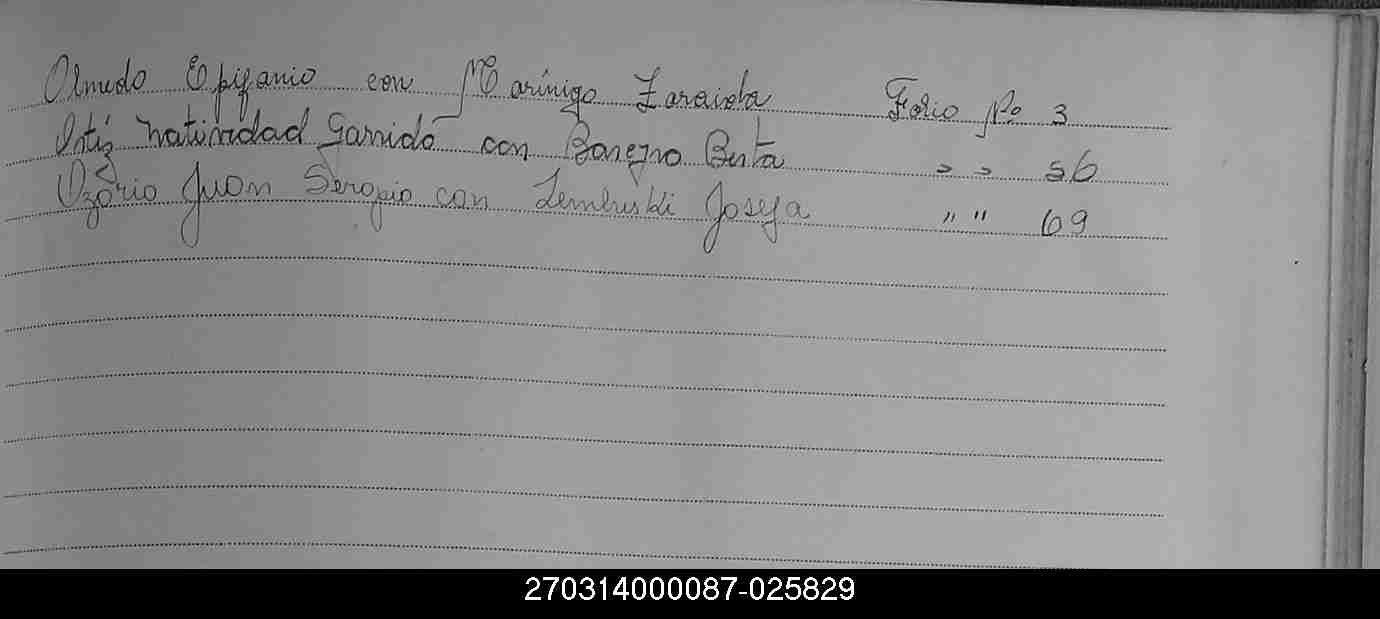 Olmedo Epifanio con Marinigo Zaraiola Folio Nº 3
Ortiz Natividad Garrido con Bareyro Berta " " 56
Ozorio Juan Sergio con Lembriski Josefa " " 69
270314000087-025829